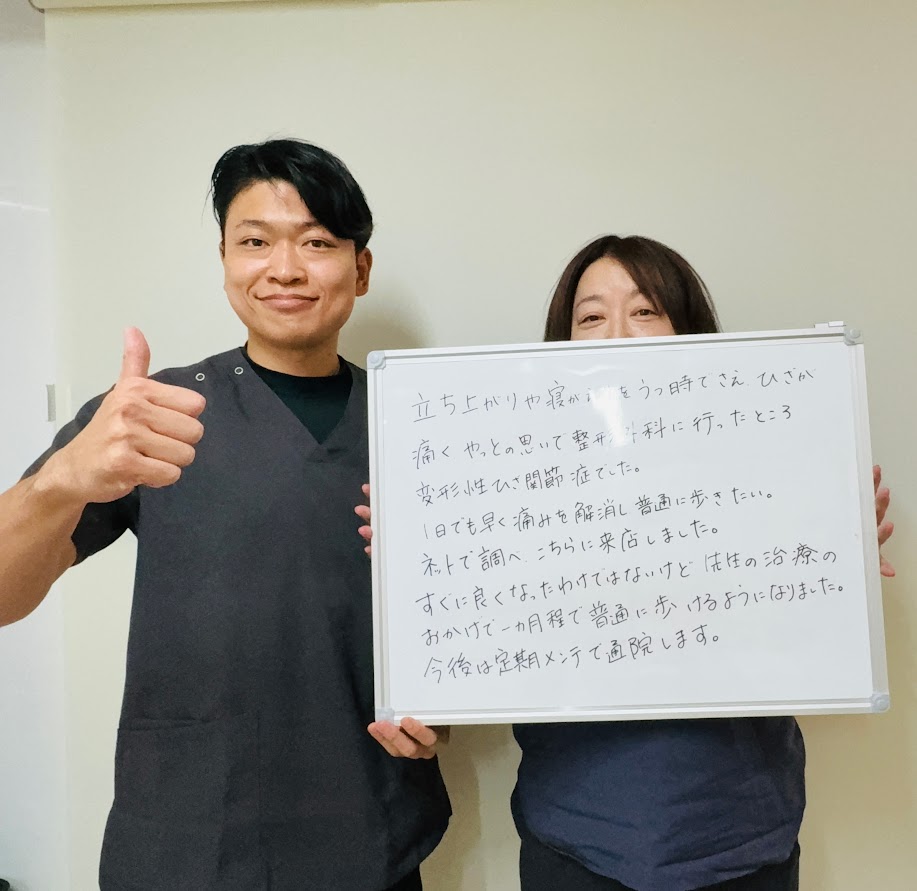 立ち上がりや寝がえりをうつ時でさえ、ひざが
痛くやっとの思いで整形外科に行ったところ
変形性ひざ関節症でした。
1日でも早く痛みを解消し普通に歩きたい。
ネットで調べ、こちらに来店しました。
すぐに良くなったわけではないけど先生の治療の
おかげで一カ月程で普通に歩けるようになりました。
今後は定期メンテで通院します。